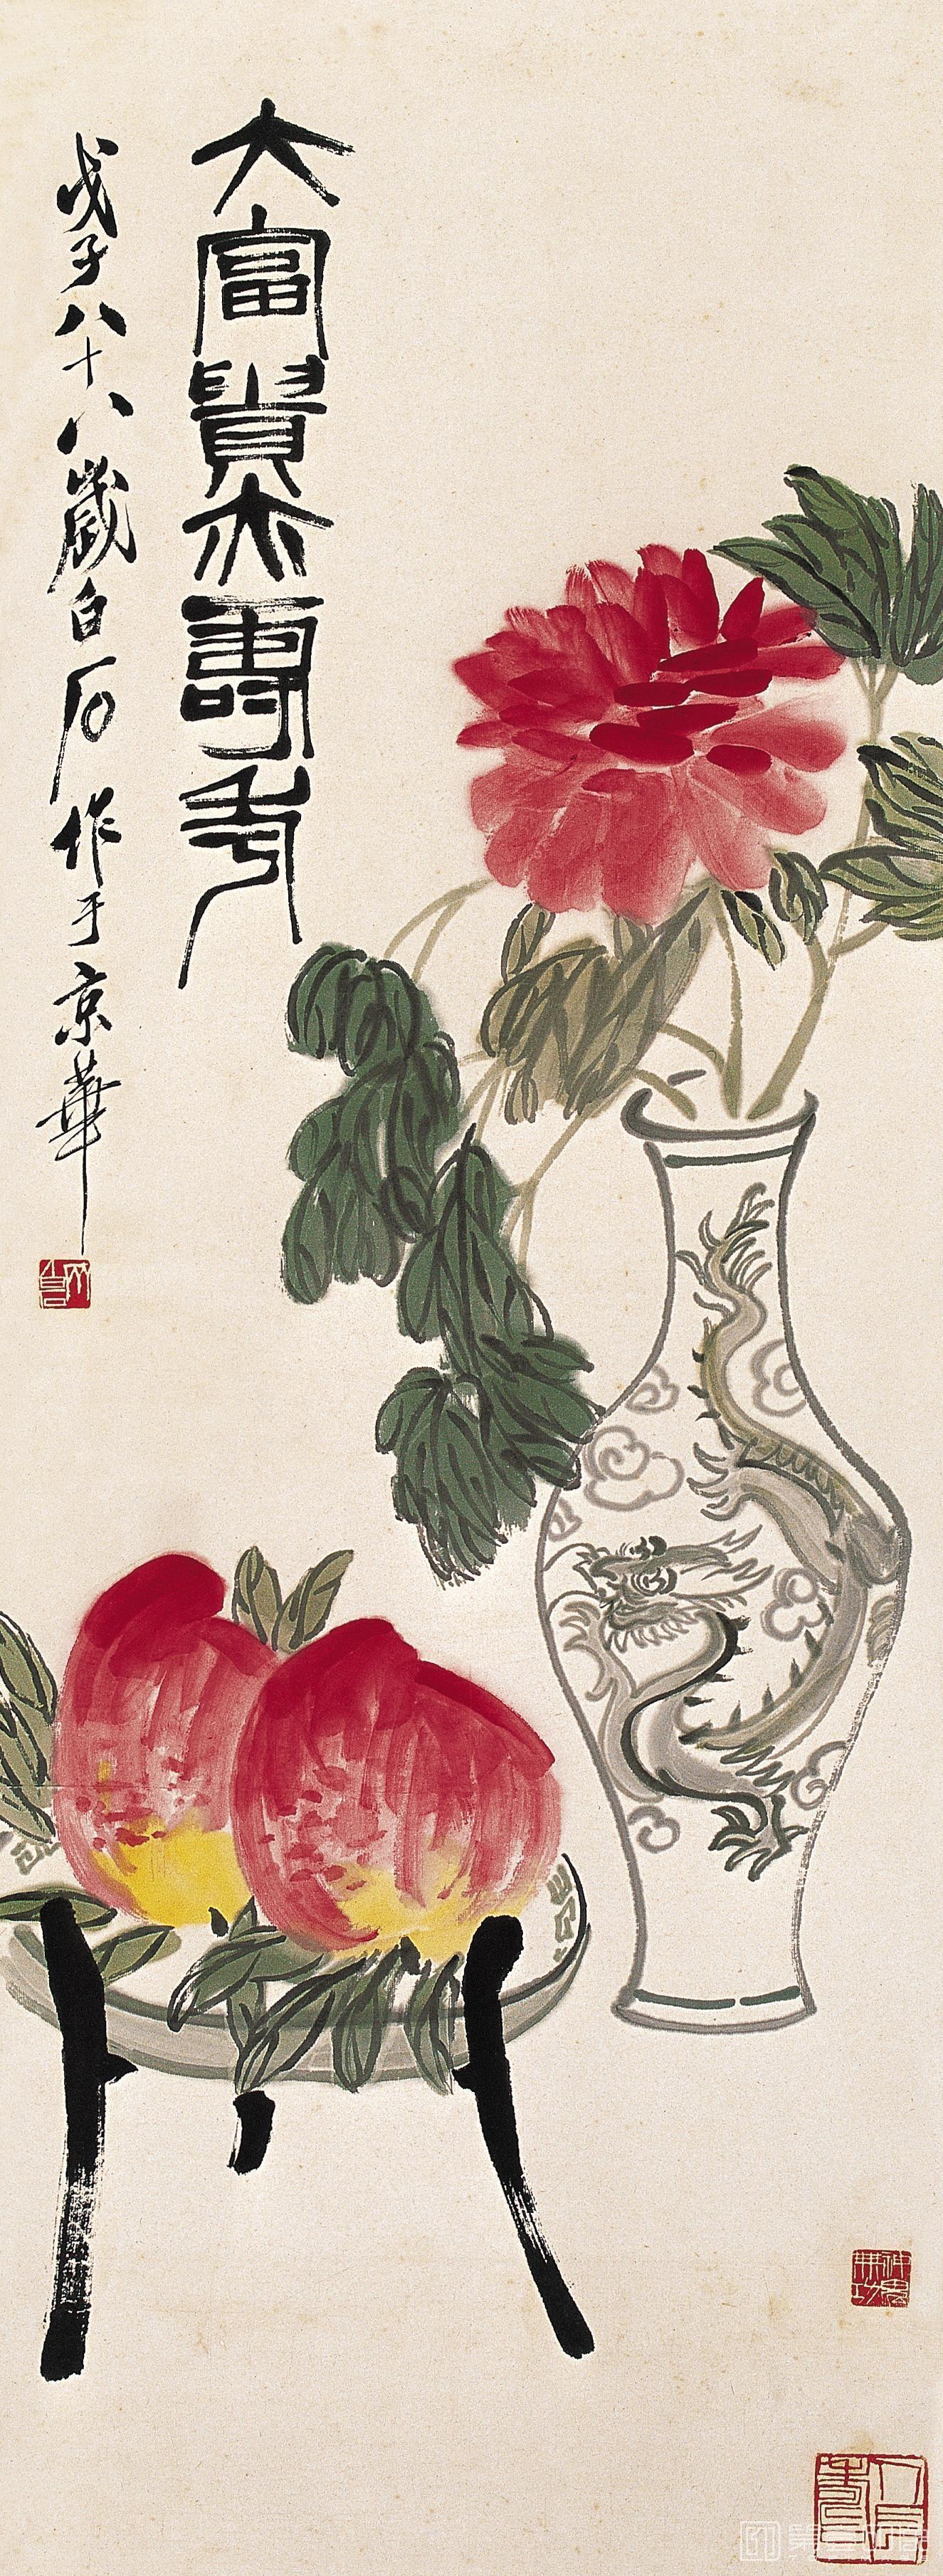 大富貴亦壽考
戊子八十八歲白石作于京華